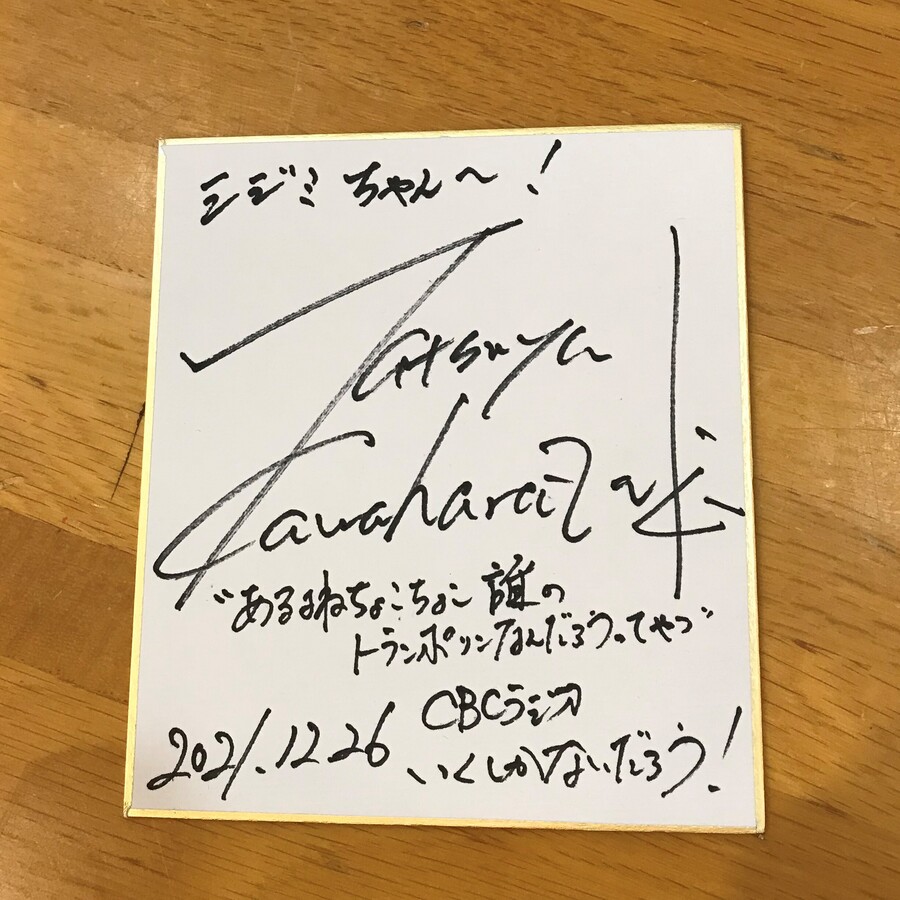 シジミちゃん〜!
Tatsuya
Kawaharazuki
"あるよねちょこちょこ誰の
トランポリンなんだろうってやつ"
CBCラジオ
2021.12.26 いくしかないだろう!